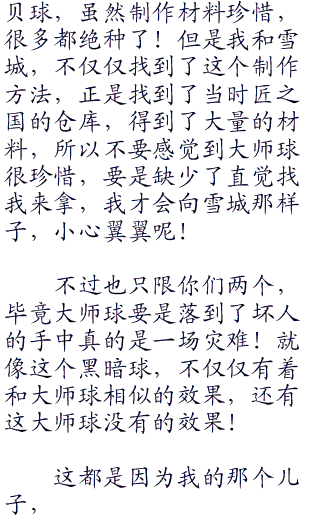 贝球，虽然制作材料珍惜，
很多都绝种了！但是我和雪
城，不仅仅找到了这个制作
方法，正是找到了当时匠之
国的仓库，得到了大量的材
料，所以不要感觉到大师球
很珍惜，要是缺少了直觉找
我来拿，我才会向雪城那样
子，小心翼翼呢！
不过也只限你们两个，
毕竟大师球要是落到了坏人
的手中真的是一场灾难！就
像这个黑暗球，不仅仅有着
和大师球相似的效果，还有
这大师球没有的效果！
这都是因为我的那个儿
子，